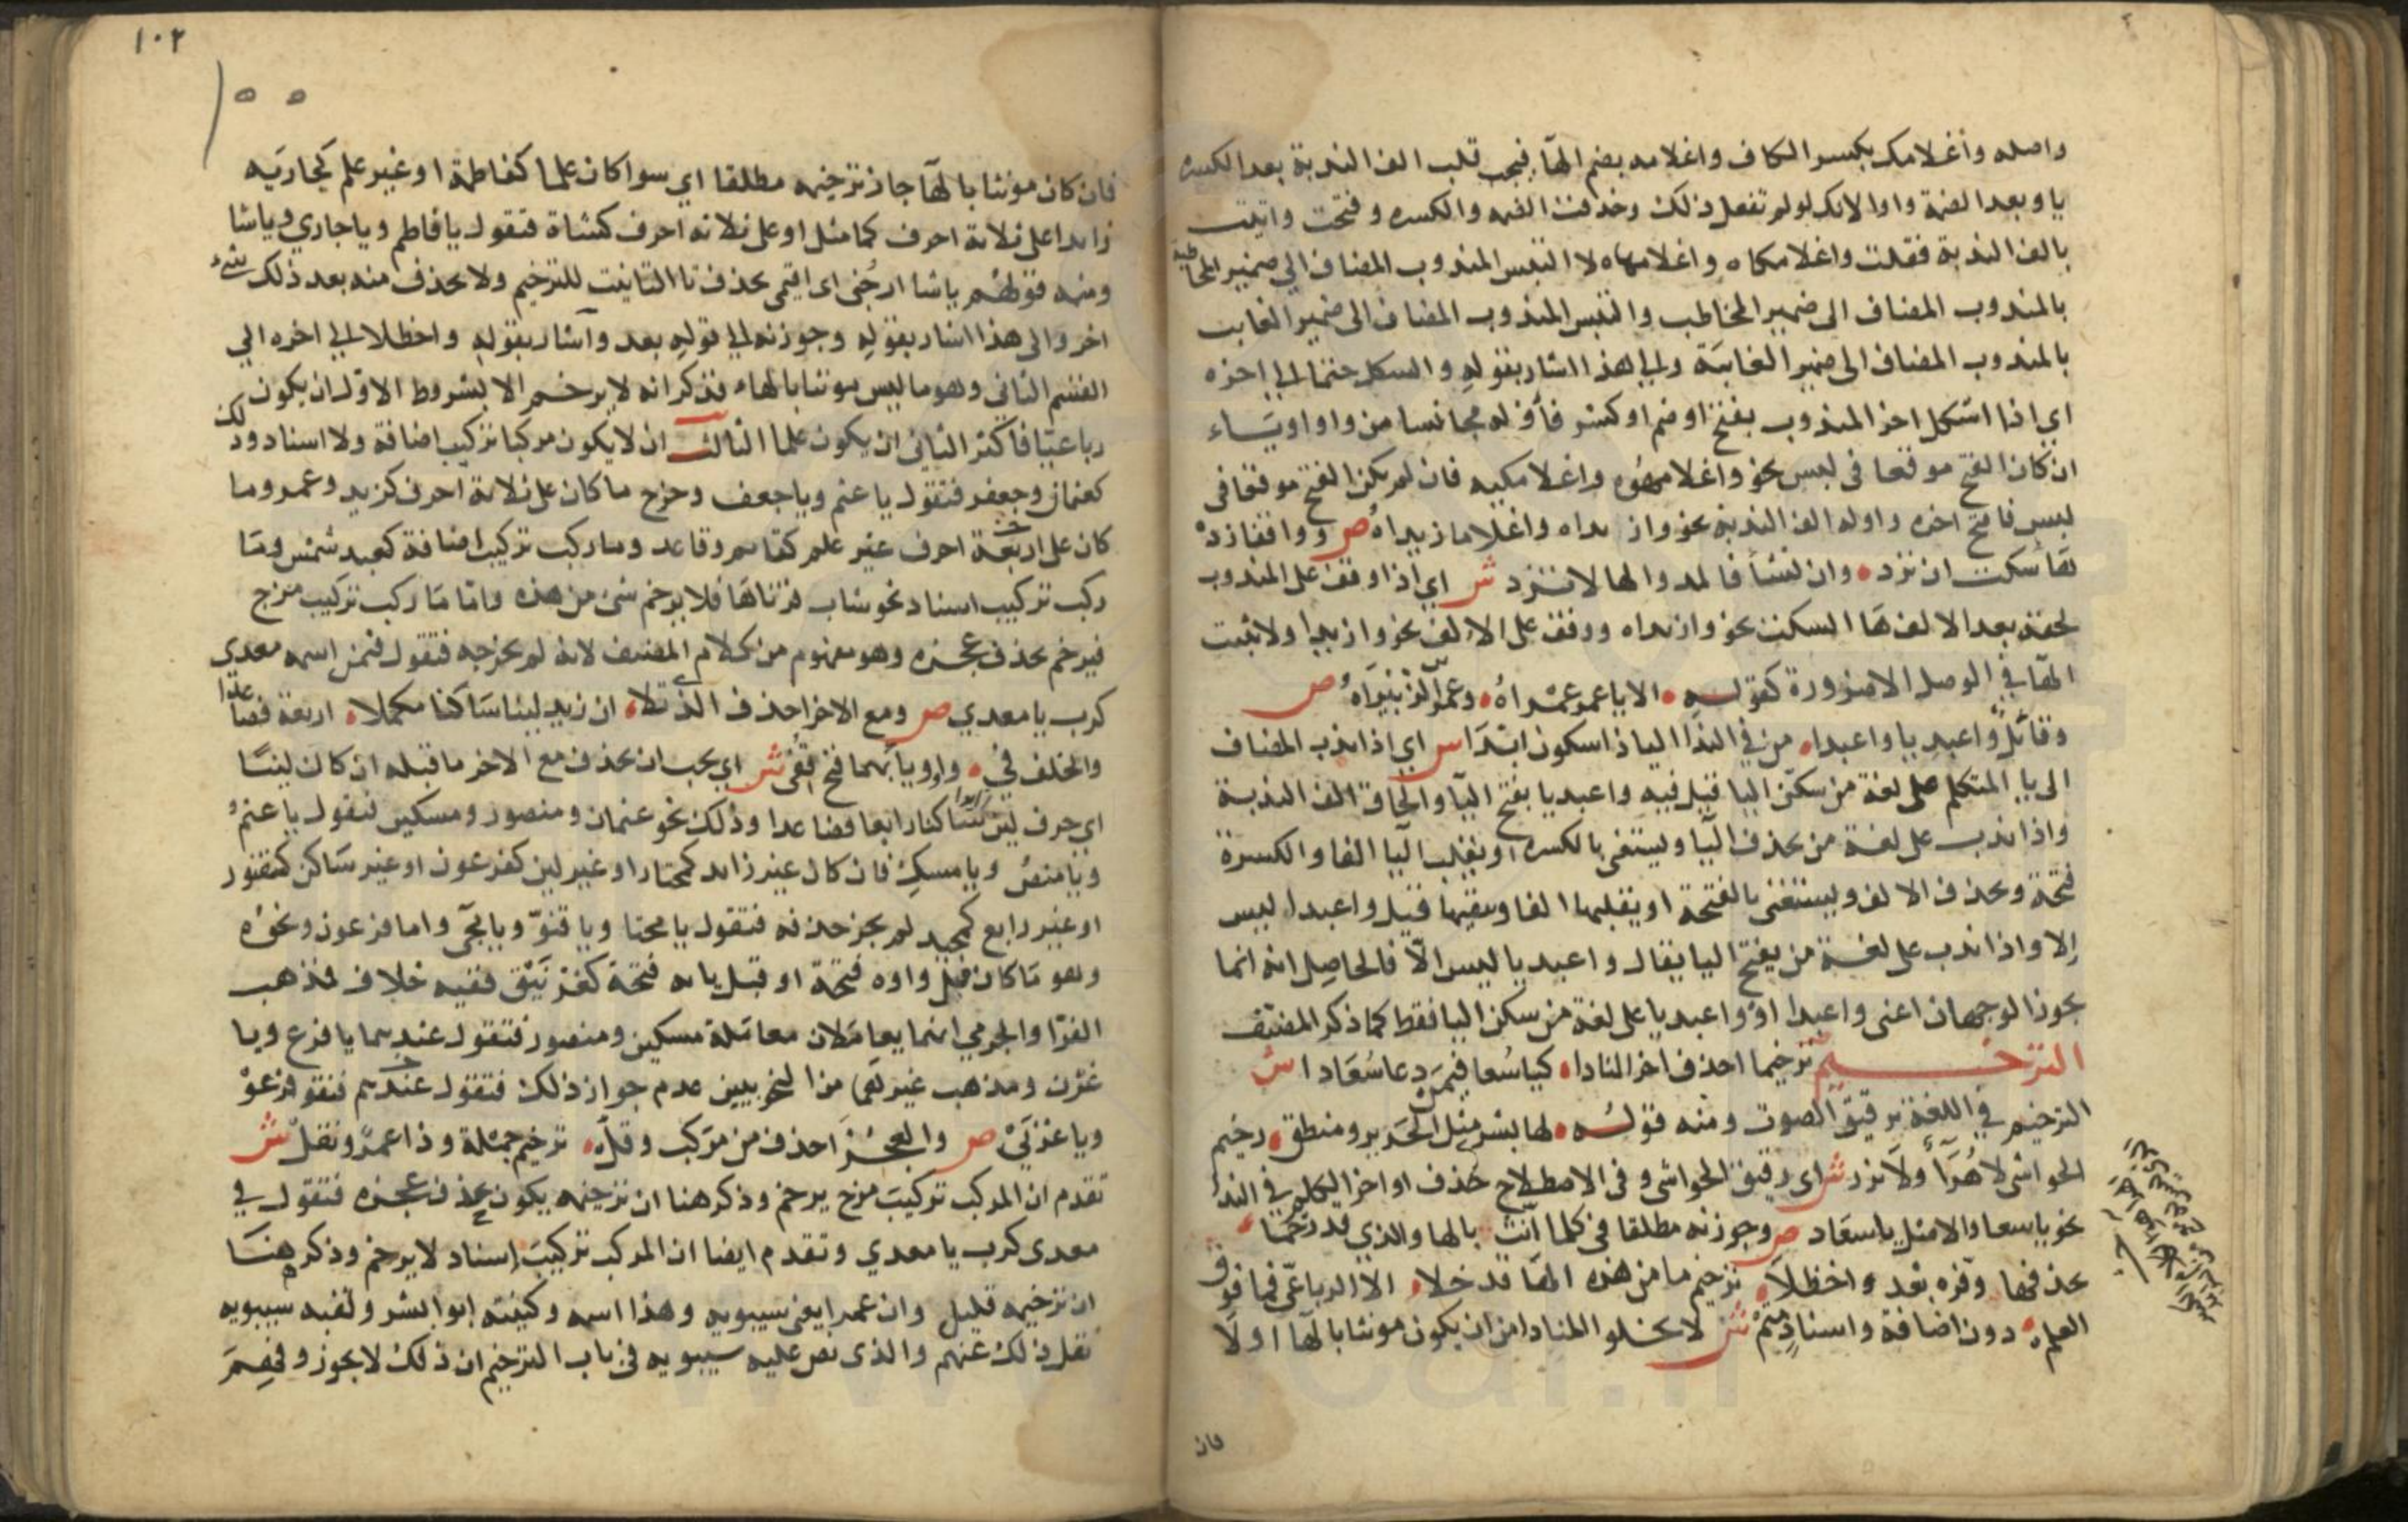 واصله واغلامك بكسر الكاف واغلامه بضم الهآ فيجب قلب الف الندبة بعد الكسرة
يا وبعد الضمة واوا لانك لو لم تفعل ذلك وحذفت الضمه والكسره وفتحت واتيت
بالف الندبة فقلت واغلامكاه واغلامهاه لا التبس المندوب المضاف الي ضمير المخاطبة
بالمندوب المضاف الى ضمير المخاطب والتبس المندوب المضاف الى ضمير الغايب
بالمندوب المضاف الى ضمير الغايبة والي هذا اشار بقوله والشكل حتما الي اخره
اي اذا اشكل اخر المندوب بفتح او ضم او كسر فأوله مجانسا من واو او يساء
ان كان الفتح موقعا فى لبس نحو واغلامهوه واغلامكيه فان لم يكن الفتح موقعا فى
لبس فافتح اخره واوله الف الندبة نحو وازيداه واغلاما زيداه ص وواقفا زد
هآ سكت ان ترد وان تشأ فالمد والها لا تزد ش اي اذا وقف على المندوب
لحقه بعد الالف هآ السكت نحو وازيداه ووقف على الالف نحو وازيدا ولا تثبت
الهآ في الوصل الا ضرورة كقوله الا يا عمرو عمراه وعمرو بن الزبيراه ص
وقائل واعبديا واعبدا من في الندا اليا ذا سكون ابدا ش اي اذا ندب المضاف
الى يا المتكلم على لغة من سكن اليا قيل فيه واعبديا بفتح اليآ والحاق الف الندبة
واذا ندب على لغة من يحذف اليآ ويستغنى بالكسره او يقلب اليآ الفا والكسرة
فتحة ويحذف الالف ويستغنى بالفتحة او يقلبها الفا ويبقيها قيل واعبدا ليس
الا واذا ندب على لغة من يفتح اليا يقال واعبديا ليس الا فالحاصل انه انما
يجوز الوجهان اعنى واعبدا او واعبديا على لغة من سكن اليا فقط كما ذكر المصنف
الترخيم ترخيما احذف اخر المنادا كياسعا فيمن دعا سعادا ش
الترخيم في اللغة ترقيق الصوت ومنه قوله لها بشر مثل الحرير ومنطق رخيم
الحواشى لا هرآ ولا نزر ش اى رقيق الحواشى وفى الاصطلاح حذف اواخر الكلم في الندا
نحو ياسعا والاصل ياسعاد ص وجوزنه مطلقا فى كلما انث بالها والذي قد رخما
بحذفها وفره بعد واحظلا ترخيم ما من هذه الها قد خلا الا الرباعى فما فوق
العلم دون اضافة واسناد متم ش لا يخلو المنادا من ان يكون مونثا بالهآ اولا
فان
١٠٢
١٥٥
فان كان مونثا بالهآ جاز ترخيمه مطلقا اي سوا كان علما كفاطمة او غير علم كجاريه
زايدا على ثلاثة احرف كما مثل او على ثلاثه احرف كشاة فتقول يا فاطم ويا جاري ويا شا
ومنه قولهم يا شا ارجنى اى اقيمى بحذف تا التانيث للترخيم ولا يحذف منه بعد ذلك شيء
اخر والى هذا اشار بقوله وجوزنه الي قوله بعد وأشار بقوله واحظلا الي اخره الي
القسم الثانى وهو ما ليس مونثا بالهاء فذكر انه لا يرخم الا بشروط الاول ان يكون
رباعيا فاكثر الثانى ان يكون علما الثالث ان لا يكون مركبا تركيب اضافة ولا اسناد وذلك
كعثمان وجعفر فتقول يا عثم ويا جعف وخرج ما كان على ثلاثة احرف كزيد وعمرو وما
كان على اربعة احرف غير علم كقايم وقاعد وما ركب تركيب اضافة كعبد شمس وما
ركب تركيب اسناد نحو شاب قرناها فلا يرخم شى من هذه واما ما ركب تركيب مزج
فيرخم بحذف عجزه وهو مفهوم من كلام المصنف لانه لم يخرجه فتقول فيمن اسمه معدي
كرب يا معدي ص ومع الاخر احذف الذى تلا ان زيد لينا ساكنا مكملا اربعة فصاعدا
والخلف في واو ويا بهما فتح قفى ش اي يجب ان يحذف مع الاخر ما قبله ان كان لينا
اى حرف لين ساكنا رابعا فصاعدا وذلك نحو عثمان ومنصور ومسكين فتقول يا عثم
ويا منص ويا مسك فان كان غير زايد كمختار او غير لين كفرعون او غير ساكن كقنور
او غير رابع كمجيد لم يجز حذفه فتقول يا مختا ويا قنو ويا مجى واما فرعون ونحوه
وهو ما كان قبل واوه فتحة او قبل يايه فتحة كغرنيق ففيه خلاف فذهب
الفرا والجرمي انهما يعاملان معاملة مسكين ومنصور فتقول عندهما يا فرع ويا
غرن ومذهب غيرهما من النحويين عدم جواز ذلك فتقول عندهم فتقو فرعو
ويا غرنى ص والعجز احذف من مركب وقل ترخيم جملة وذا عمرو نقل ش
تقدم ان المركب تركيب مزج يرخم وذكر هنا ان ترخيمه يكون بحذف عجزه فتقول في
معدى كرب يا معدي وتقدم ايضا ان المركب تركيب إسناد لا يرخم وذكر هنا
ان ترخيمه قليل وان عمرا يعنى سيبويه وهذا اسمه وكنيته ابو البشر ولقبه سيبويه
نقل ذلك عنهم والذى نص عليه سيبويه فى باب الترخيم ان ذلك لا يجوز وفهم